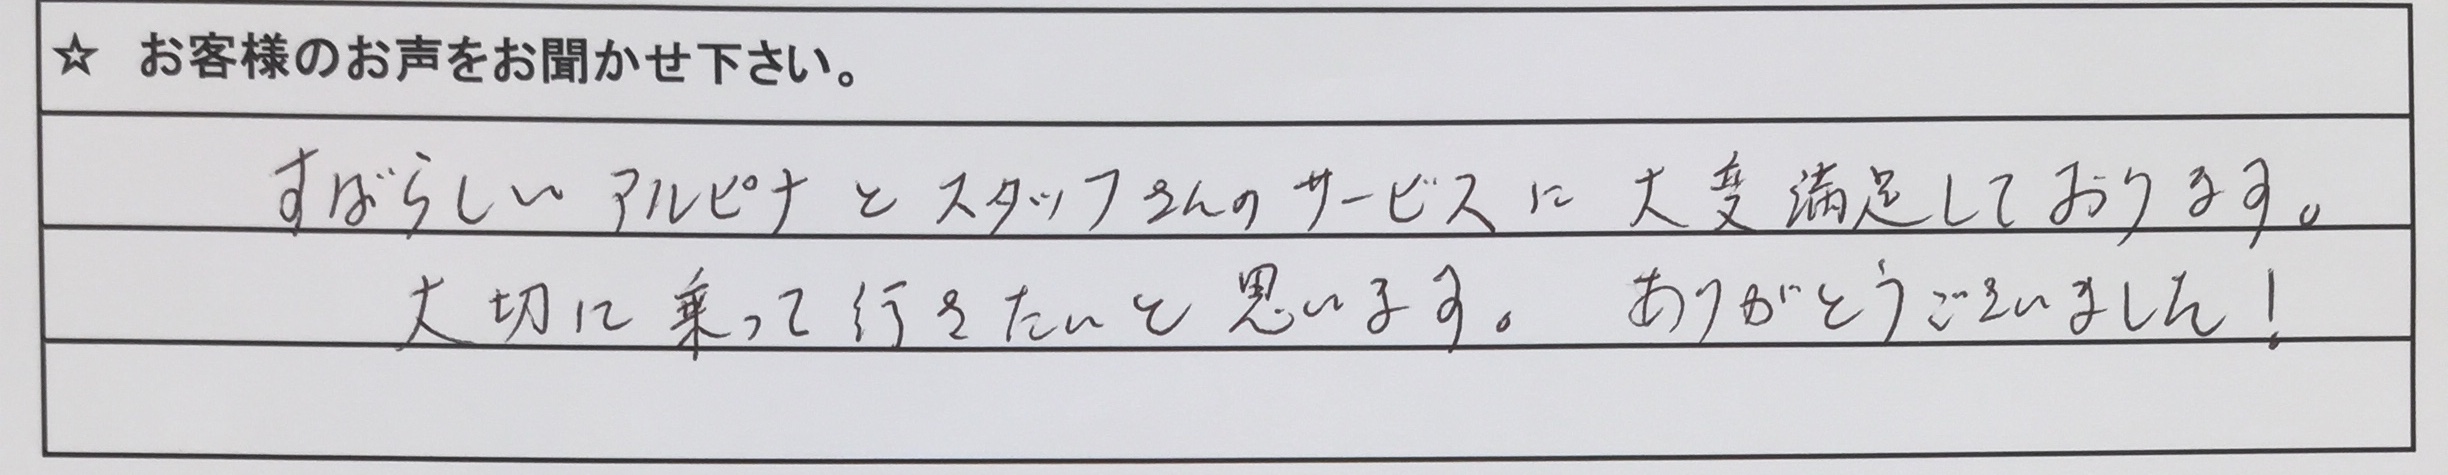 ☆ お客様のお声をお聞かせ下さい。
すばらしいアルピナとスタッフさんのサービスに大変満足しております。
大切に乗って行きたいと思います。 ありがとうございました!